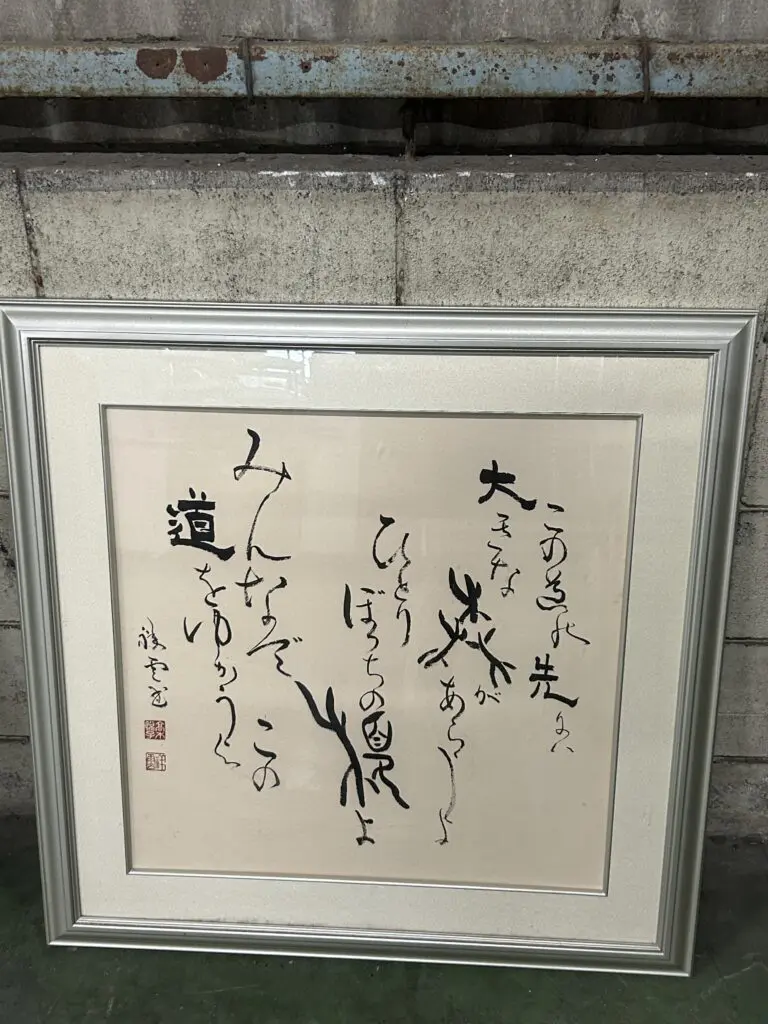 この道の先には
大きな森が
あらうよ
ひとり
ぼっちの榎よ
みんなで
この
道をゆかうよ